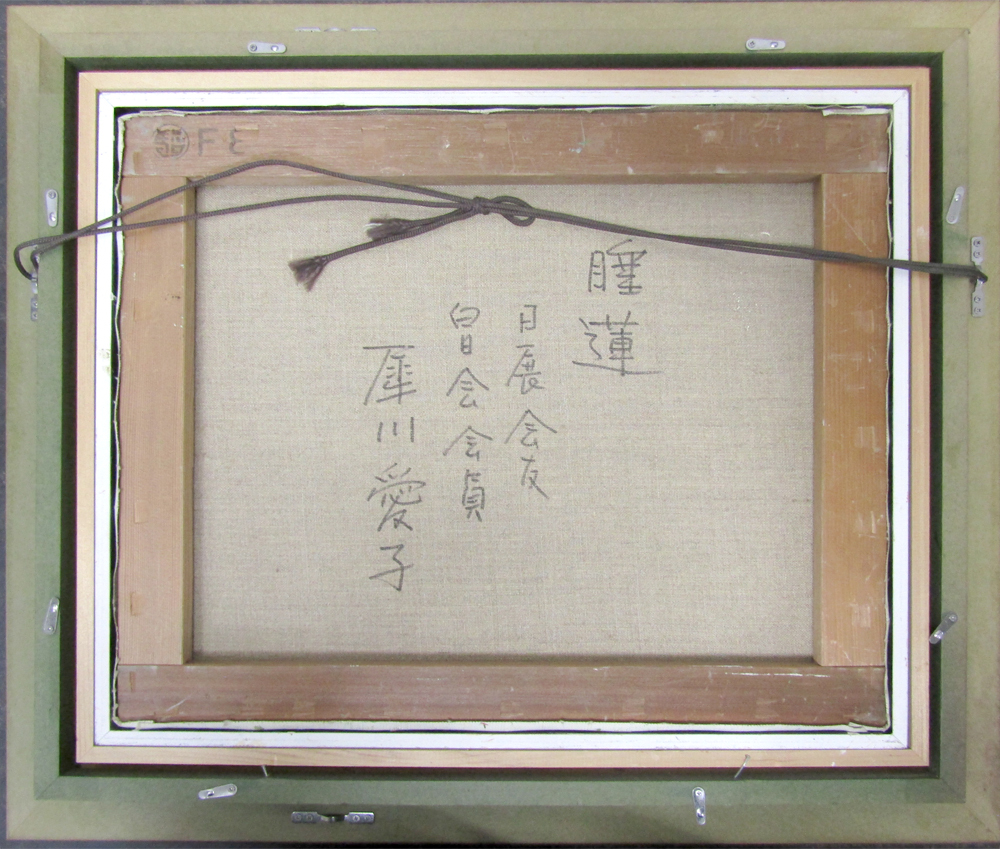 F 3
睡蓮
日展会友
白日会会員
犀川愛子